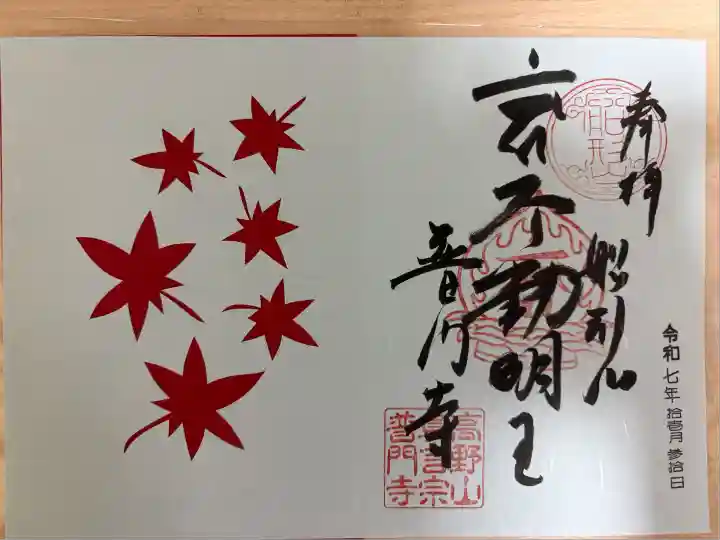 奉拝
船形山
不動明王
普門寺
令和七年拾壹月参拾日
高野山
真言宗
普門寺